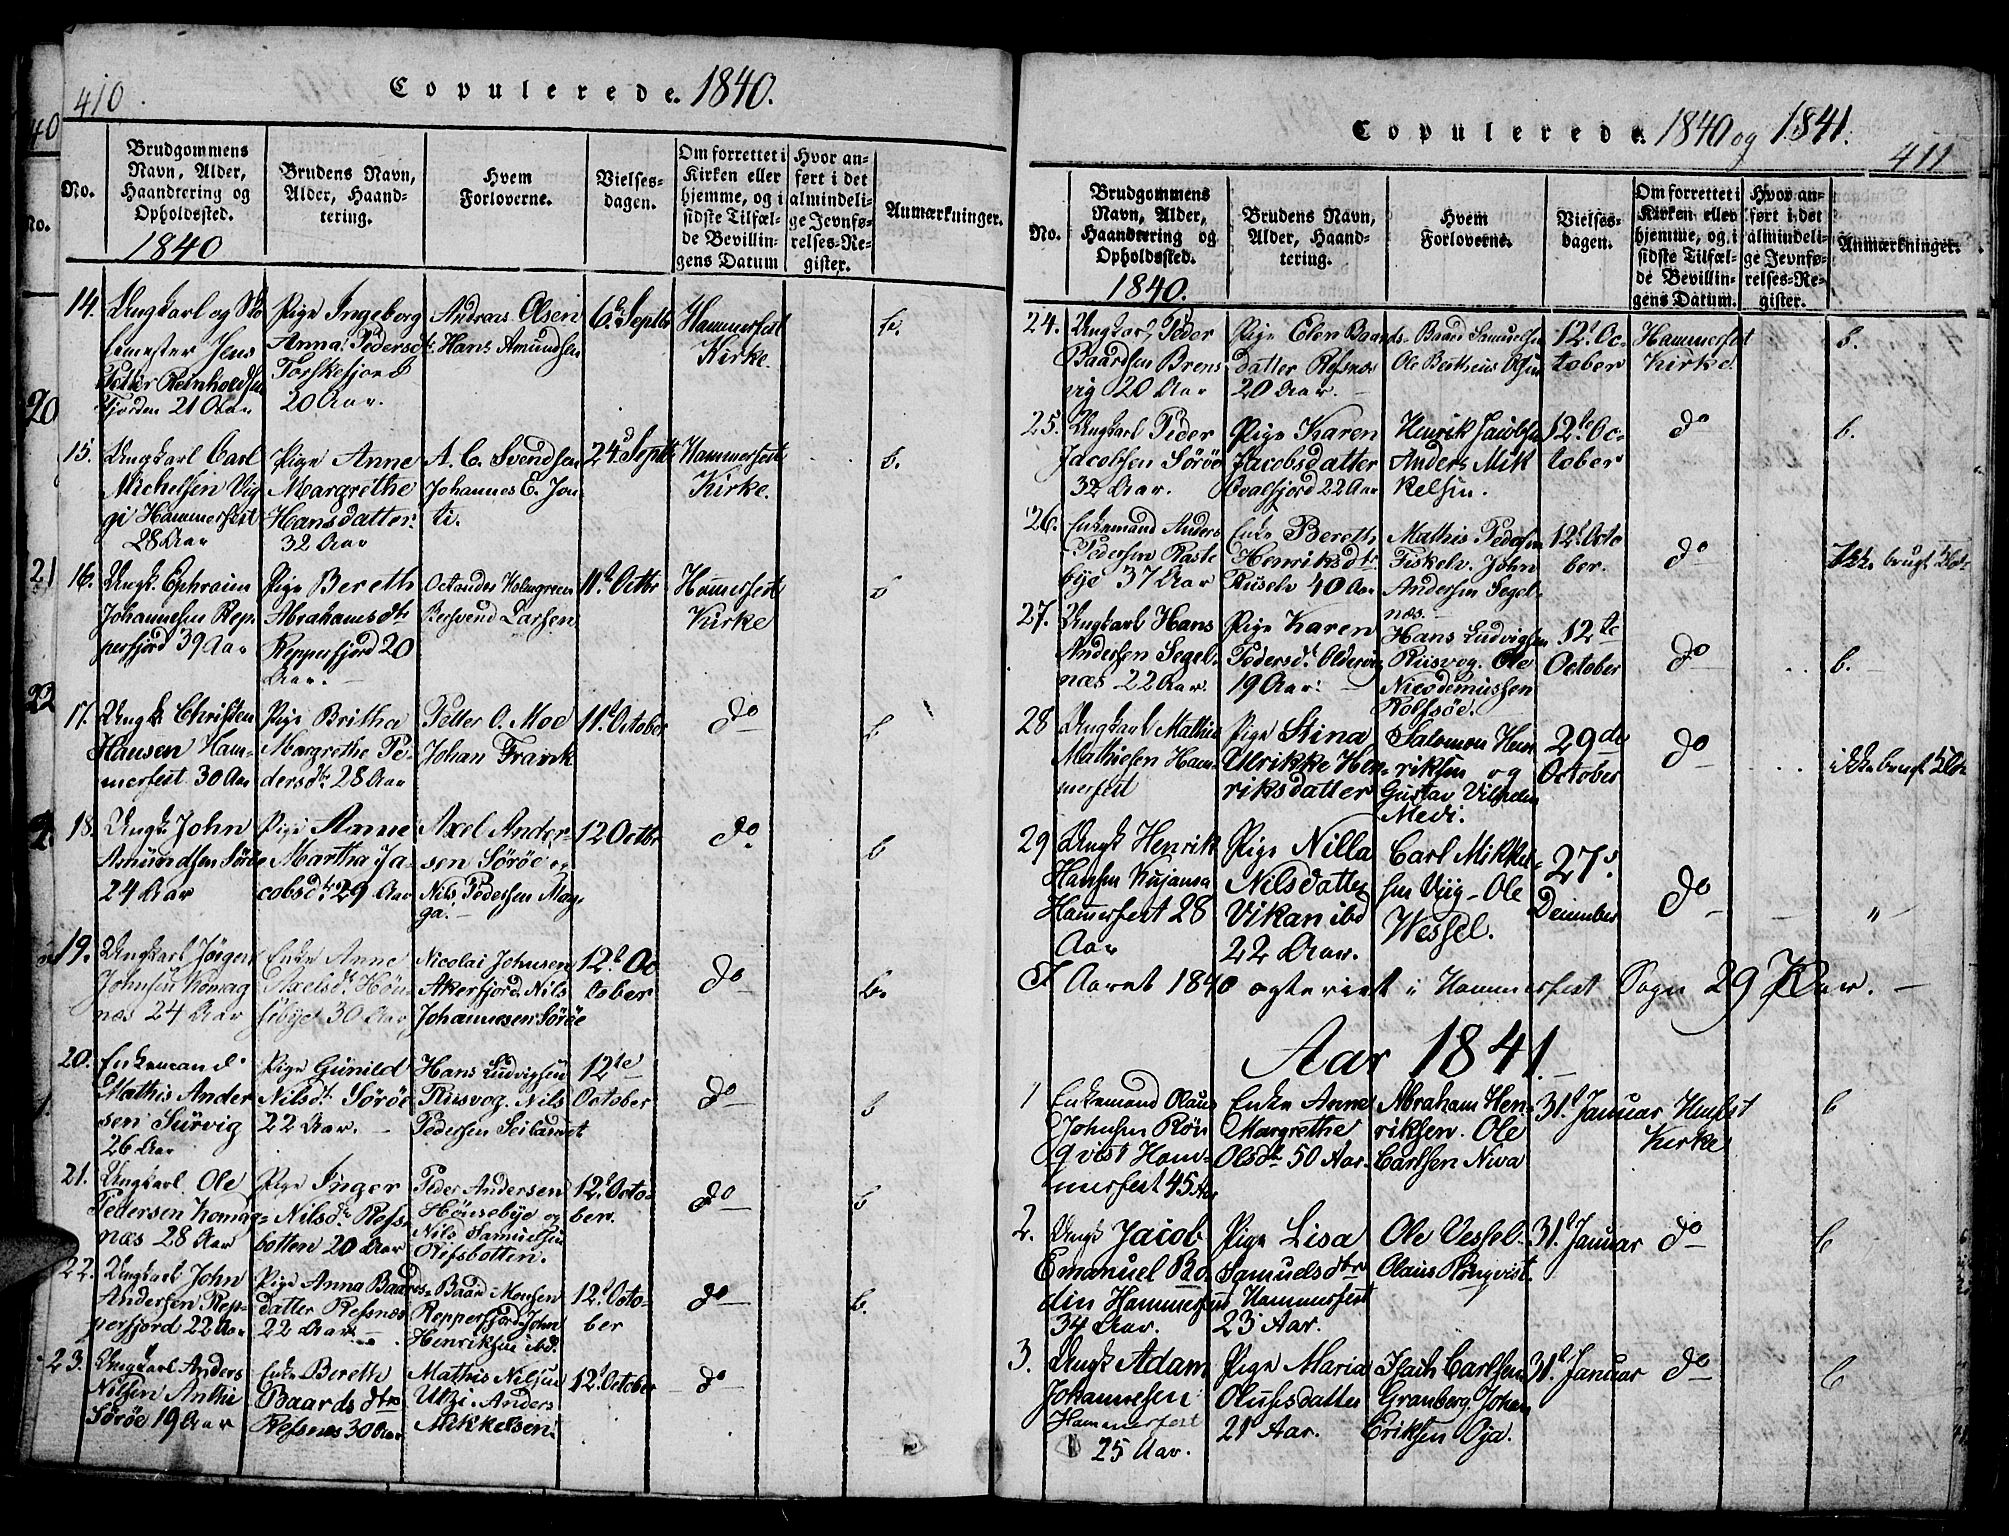 410.
Copulerede 1840.
No.
Brudgommens
Navn, Alder,
Haandtering og
Opholdssted.
1840
Brudens Navn,
Alder, Haand-
tering.
Hvem
Forloverne.
Vielses-
dagen.
Om forrettet i
Kirken eller
hjemme, og i
sidste Tilfæl-
de Bevillin-
gens Datum
Hvor an-
ført i det
almindeli-
ge Jevnfø-
relses-Re-
gister.
Anmærkninger.
14.
Ungkarl og
Jens
Petter Reinholdsen
Fjorden 21 Aar
Pige Ingeborg
Anna Pedersdt.
Torskefjord
20 Aar.
Andreas Olsen
Hans Amundsen
6te Septbr
Hammerfest
Kirke.
b.
15.
Ungkarl Carl
Michelsen Vig
gi Hammerfest
28 Aar
Pige Anne
Margrethe
Hansdatter.
32 Aar
A. C. Svendsen
Johannes E. Jon
ti.
24d Septbr
Hammerfest
Kirke.
b.
16.
Ungk. Ephraim
Johannesen Rep-
perfjord 39 Aar
Pige Bereth
Abrahamsdtr
Repperfjord 20
Aar.
Octandes Holmgreen
Larsen
11te Octbr
Hammerfest
Kirke
b
17.
Ungk. Christen
Hansen Ham-
merfest. 30 Aar
Pige Britha
Margrethe Pe-
dersdtr 28 Aar
Petter O. Moe
Johan Frank
11te October
do
b
18.
Ungk. John
Amundsen Sörøe
24 Aar
Pige Anne
Martha Ja-
cobsdtr 29 Aar
Axel Ander-
sen Sörøe og
Nils Pedersen Mag-
ga.
12 Octbr
do
b
19.
Ungkarl Jørgen
Johnsen Komag
næs 24 Aar
Enke Anne
Axelsdt. Hön-
sebyet 30 Aar
Nicolai Johnsen
Akerfjord. Nils
Johannesen Sörøe
12te Oc
tober
do
b.
20.
Enkemand
Mathis Ander
sen Survig
26 Aar
Pige Gunild
Nilsdt. Sörøe
22 Aar.
Hans Ludvigsen
Riisvog. Nils
Pedersen Seilandet
12te
October
do
b
21.
Ungkarl Ole
Pedersen Komag-
næs 28 Aar
Pige Inger
Nilsdt. Refs-
botten 20 Aar
Peder Andersen
Hönsebye og
Nils Samuelsen
Refsbotten.
12te Octo-
ber.
do
b
22.
Ungkarl John
Andersen Rep-
perfjord 22 Aar
Pige Anna Baards-
datter Refsnæs
22 Aar
Baard Monsen
Repperfjord John
Henriksen ibd.
12te Octo-
ber
do
b.
23.
Ungkarl Anders
Nilsen Anthi
Sörøe 19 Aar
Enke Berethe
Baardsdtr
Refsnes 30 Aar
Mathis Nilsen
Utzi. Anders
Mikkelsen.
12te October
do
Copulerede 1840 og 1841.
411
No.
Brudgommens
Navn, Alder,
Haandtering og
Opholdssted.
1840.
Brudens Navn,
Alder, Haand-
tering.
Hvem
Forloverne.
Vielses-
dagen.
Om forrettet i
Kirken eller
hjemme, og i
sidste Tilfæl-
de Bevillin-
gens Datum.
Hvor an-
ført i det
almindeli-
ge Jevnfø-
relses-Re-
gister.
Anmærkninger.
24.
Ungkarl Peder
Baardsen Brens
vig 20 Aar
Pige Elen Baards-
datter Refsnæs
20 Aar.
Baard Samuelsen
Ole Berthius Olsen
12te Oc-
tober
Hammerfest
Kirke.
b.
25.
Ungkarl Peder
Jacobsen Sörøe
32 Aar.
Pige Karen
Jacobsdatter
Qvalfjord 22 Aar
Henrik Jacobsen
Anders Mik
kelsen.
12te Oc-
tober
do
b.
26.
Enkemand Anders
Pedersen Raste
bye 37 Aar
Enke Bereth
Henriksdtr
Riiselv 40 Aar
Mathis Pedersen
Fiskelv. John
Andersen Segel-
næs.
12te Octo
ber.
do
Ikke brugt
27.
Ungkarl Hans
Andersen Segel-
næs 22 Aar.
Pige Karen
Pedersdt. Oldervig
19 Aar.
Hans Ludvigsen
Riisvog. Ole
Nicodemussen
Rolfsöe.
12te
October
do
b.
28
Ungkarl Mathis
Mathiesen Ham-
merfest
Pige Stina
Ulrikke Hen-
riksdatter
Salomon Hen
riksen og
Gustav Vilhelm
Medi.
29de
October
do
ikke brugt
29
Ungk. Henrik
Hansen Kujansa
Hammerfest 28
Aar
Pige Nilla
Nilsdatter
Vikan ibd
22 Aar.
Carl Mikkel-
sen Viig - Ole
Wessel.
27de
December
do
"
I Aaret 1840 ægteviet i Hammerfest Sogn 29 Par.
Aar 1841.
1
Enkemand Olaus
Johnsen Rön
qvist Ham-
merfest 45 Aar
Enke Anne
Margrethe
Olsdtr 50 Aar.
Abraham Hen-
riksen. Ole
Carlsen Niva
31te Januar
Hmfst
Kirke
b
2.
Ungk. Jacob
Emanuel Bo-
din Hammerfest
34 Aar.
Pige Lisa
Samuelsdtr
Hammerfest
23 Aar.
Ole Vessel.
Olaus Rönqvist.
31te Januar
do
b
3.
Ungk. Adam
Johannesen
Hammerfest
25 Aar.
Pige Maria
Olufsdatter
21 Aar.
Isach Carlsen
Granberg. Johan
Eriksen Oja.
31te Januar
do
b